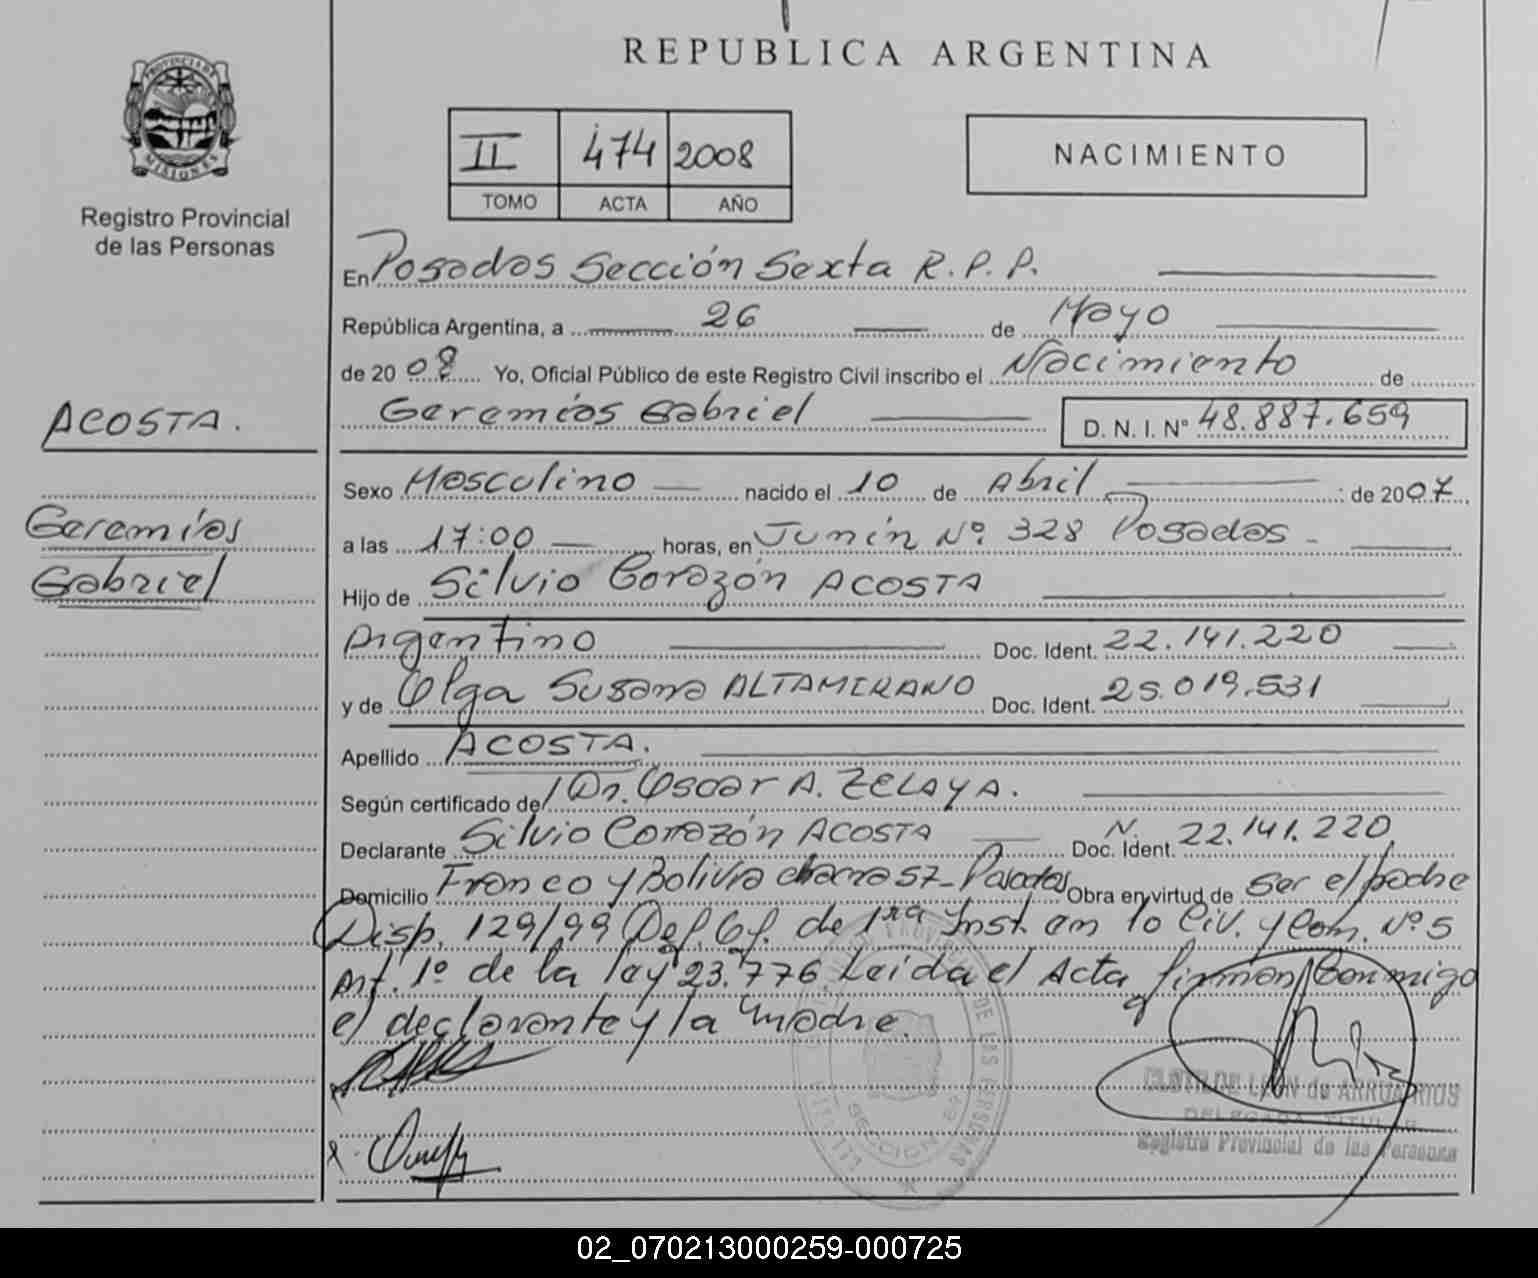 REPUBLICA ARGENTINA
PROVINCIA DE
MISIONES
Registro Provincial
de las Personas
II 474 2008
TOMO ACTA AÑO
NACIMIENTO
En Posadas Sección Sexta R.P.P.
República Argentina, a 26 de Mayo
de 2008 Yo, Oficial Público de este Registro Civil inscribo el Nacimiento de
Geremías Gabriel D. N. I. N° 48.887.659
ACOSTA.
Geremías
Gabriel
Sexo Masculino nacido el 10 de Abril de 2007
a las 17:00 horas, en Junín Nº 328 Posadas
Hijo de Silvio Corazón ACOSTA
Argentino Doc. Ident. 22.141.220
y de Olga Susana ALTAMIRANO Doc. Ident. 25.019.531
Apellido ACOSTA.
Según certificado de Dr. Oscar A. ZELAYA.
Declarante Silvio Corazón ACOSTA Doc. Ident. N. 22.141.220
Domicilio Franco y Bolivia chacra 57 - Posadas Obra en virtud de ser el padre
Disp. 129/99 Def. Of. de 1ra Inst. en lo Civ. y Com. Nº 5
Art. 1º de la ley 23.776 Leída el Acta firman Conmigo
el declarante y la madre.
CLOTILDE LEON de ARRUARIOS
DELEGADA TITULAR
Registro Provincial de las Personas
DE LAS PERSONAS
SECCION 6ª
02_070213000259-000725